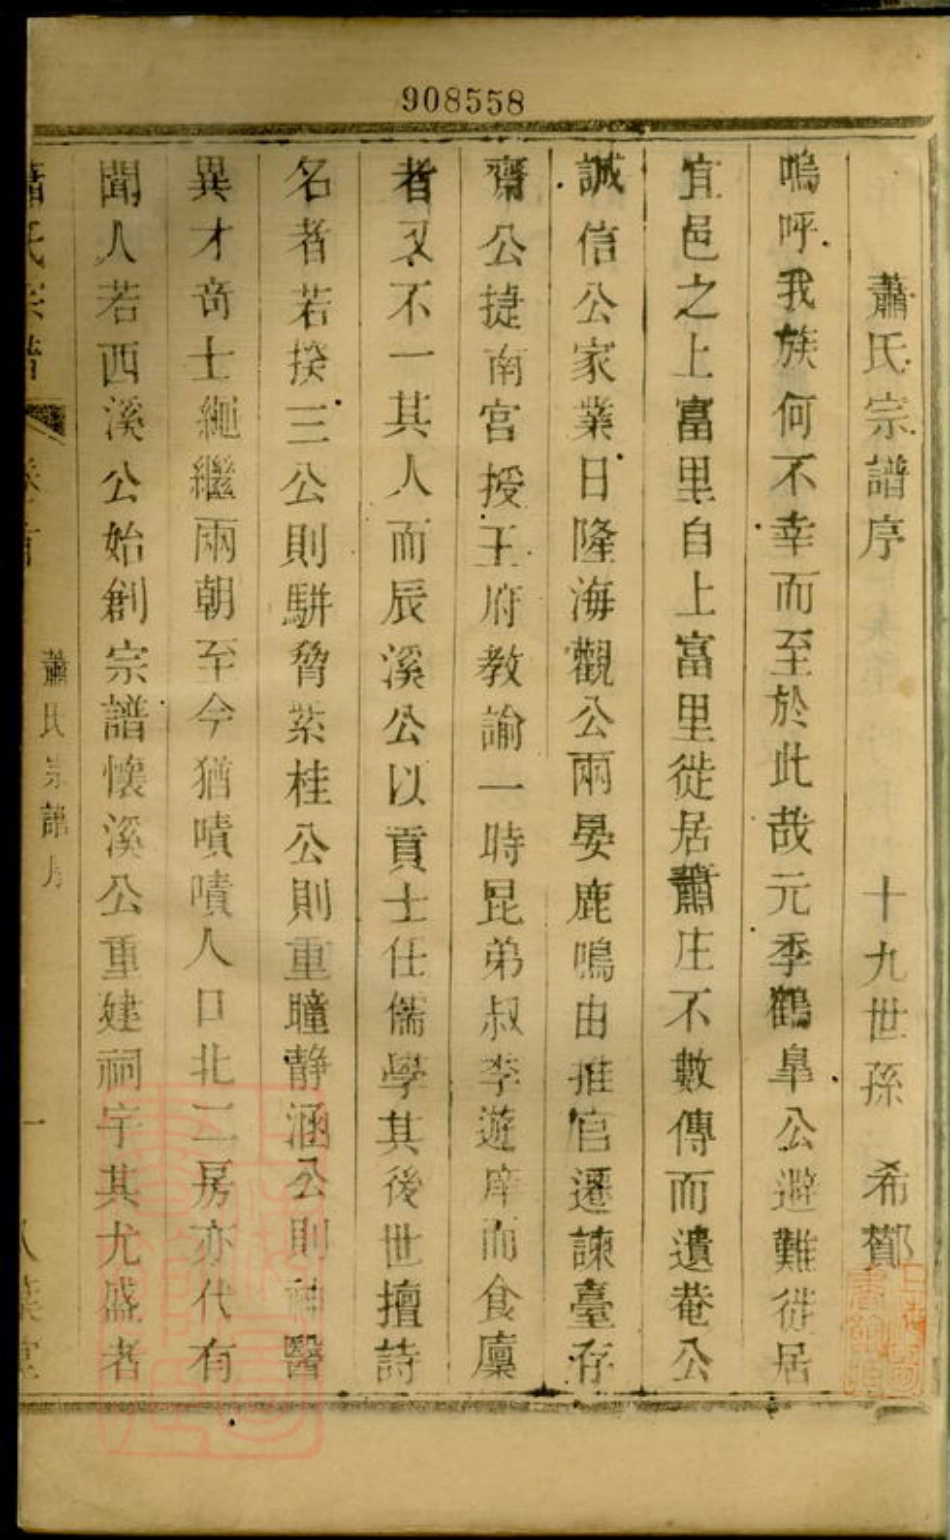 908558
蕭氏宗譜序 十九世孫 希酇
嗚呼我族何不幸而至於此哉元季鶴皐公避難徙居
宜邑之上富里自上富里徙居蕭庄不數傳而遺菴公
誠信公家業日隆海觀公兩晏鹿鳴由推官遷諫臺存
齋公捷南宮授王府教諭一時昆弟叔季遊庠而食廩
者又不一其人而辰溪公以貢士任儒學其後世擅詩
名者若揆三公則駢脅紫桂公則重瞳靜涵公則神醫
異才奇士繩繼兩朝至今猶嘖嘖人口北二房亦代有
聞人若西溪公始創宗譜懷溪公重建祠宇其尤盛者
蕭氏宗譜 卷首 蕭氏宗譜序 一 八葉堂